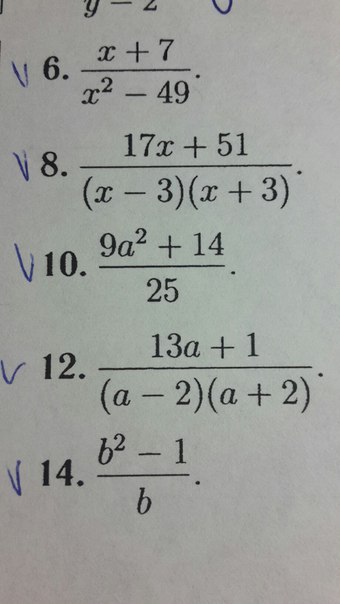 y − 2
6. (x + 7)/(x² − 49).
8. (17x + 51)/((x − 3)(x + 3)).
10. (9a² + 14)/25.
12. (13a + 1)/((a − 2)(a + 2)).
14. (b² − 1)/b.